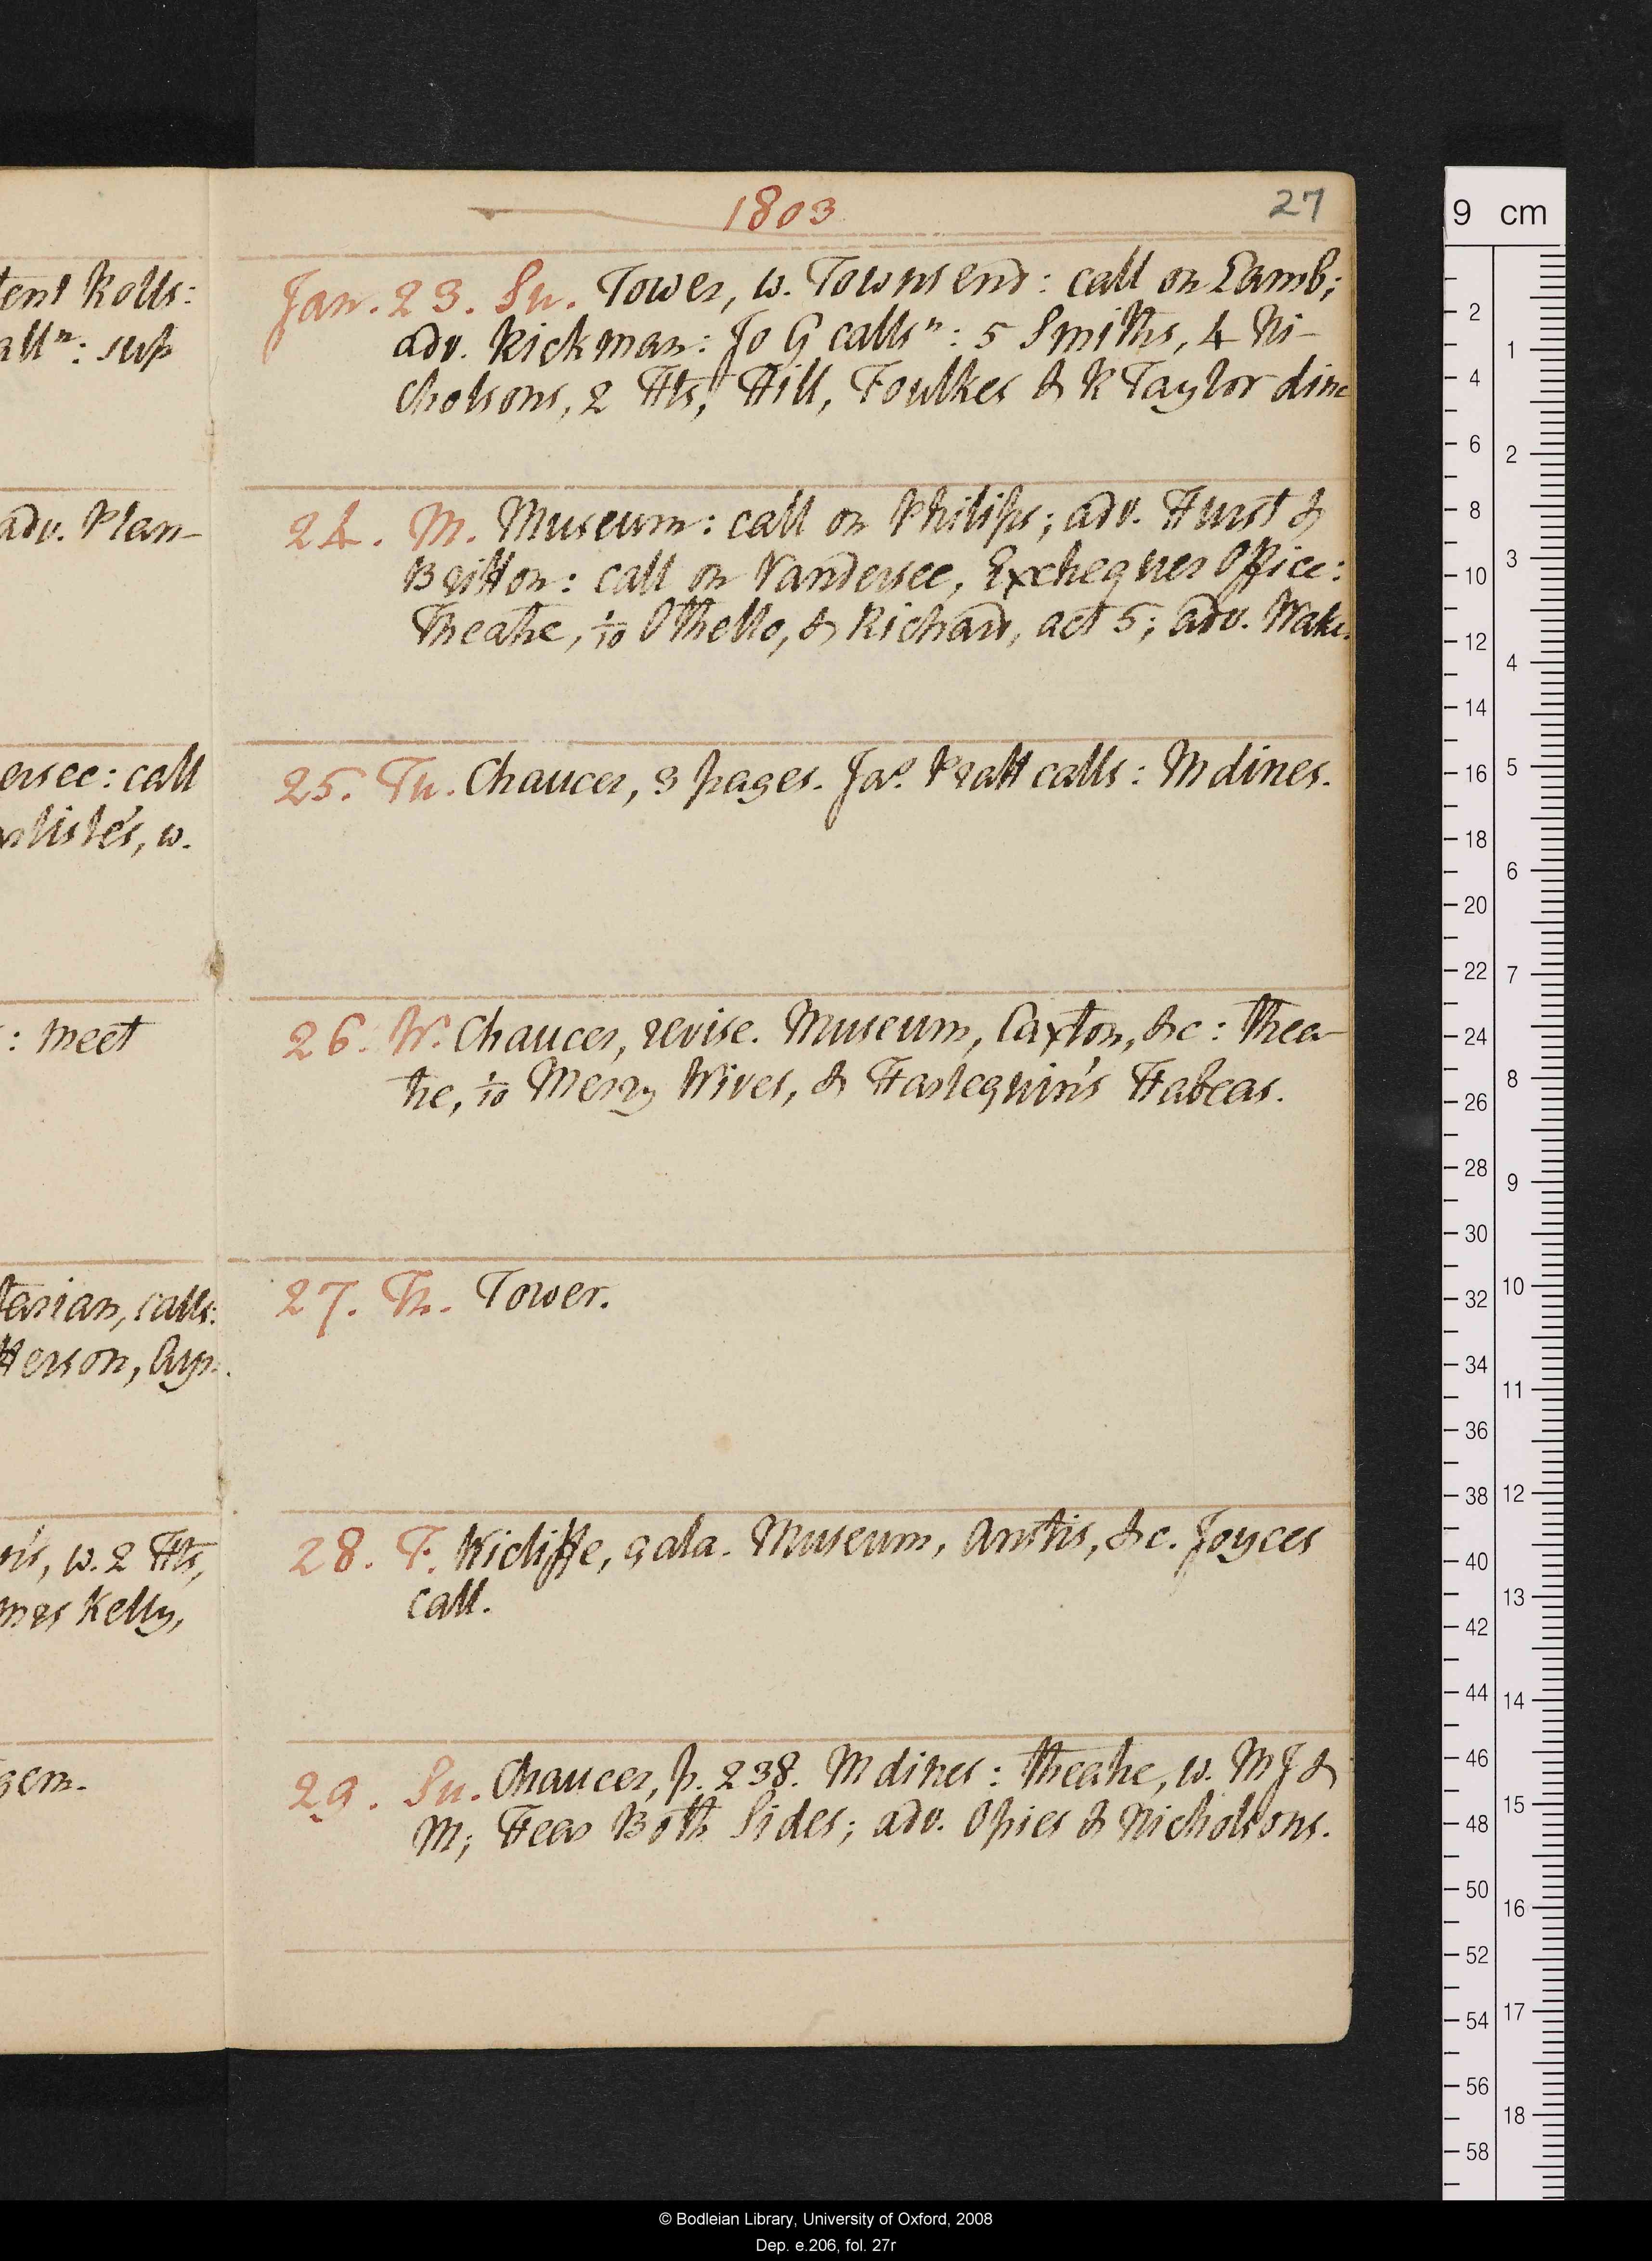 1803
27
tent Rolls:
alln: sup
adv. Plan-
ersee: call
w.
: meet
tarian, calls:
erson,
w. 2 Hts,
Kelly,
gem.
Jan. 23. Su. Tower, w. Townsend: call on Lamb;
adv. Rickman: Jo G callsn: 5 Smiths, 4 Ni-
cholsons, 2 Hts, Hill, Foulkes & R Taylor dine
24. M. Museum: call on Philips; adv. Hurst &
Britton: call on Vandersee, Exchequer Office:
Theatre, 1/10 Othello, & Richard, act 5; adv. Wake.
25. Tu. Chaucer, 3 pages. Jas Pratt calls: M dines.
26. W. Chaucer, revise. Museum, Caxton, &c: Thea-
tre, 1/10 Merry Wives, & Harlequin's Habeas.
27. Th. Tower.
28. F. Wicliffe, çala. Museum, Anstis, &c. Joyces
call.
29. Su. Chaucer, p. 238. M dines: theatre, w. M J &
M; Hear Both Sides; adv. Opies & Nicholsons.
9 cm
2
4
6
8
10
12
14
16
18
20
22
24
26
28
30
32
34
36
38
40
42
44
46
48
50
52
54
56
58
1
2
3
4
5
6
7
8
9
10
11
12
13
14
15
16
17
18
© Bodleian Library, University of Oxford, 2008
Dep. e.206, fol. 27r